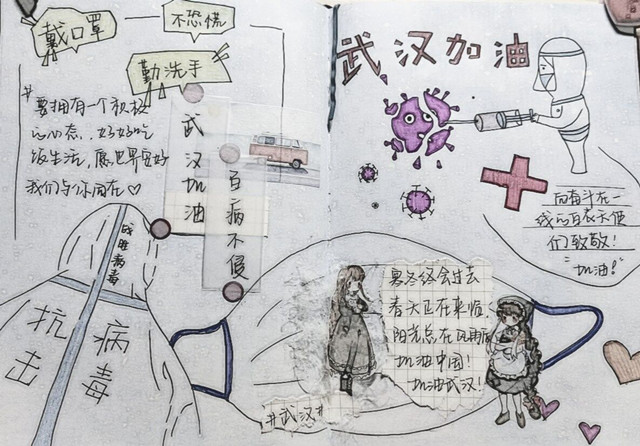 戴口罩
不恐慌
勤洗手
#要拥有一个积极
心态，好好吃
饭生活，愿世界安好
我们与你同在♡
武汉加油
百病不侵
战胜病毒
抗击
病毒
武汉加油
向奋斗在一
线的白衣天使
们致敬！
"加油！"
寒冬终会过去
春天正在来临，
阳光总在风雨后
加油中国！
加油武汉！
#武汉#